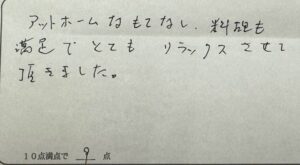 アットホームなもてなし、料理も
満足でとても リラックスさせて
頂きました。
10点満点で 9 点